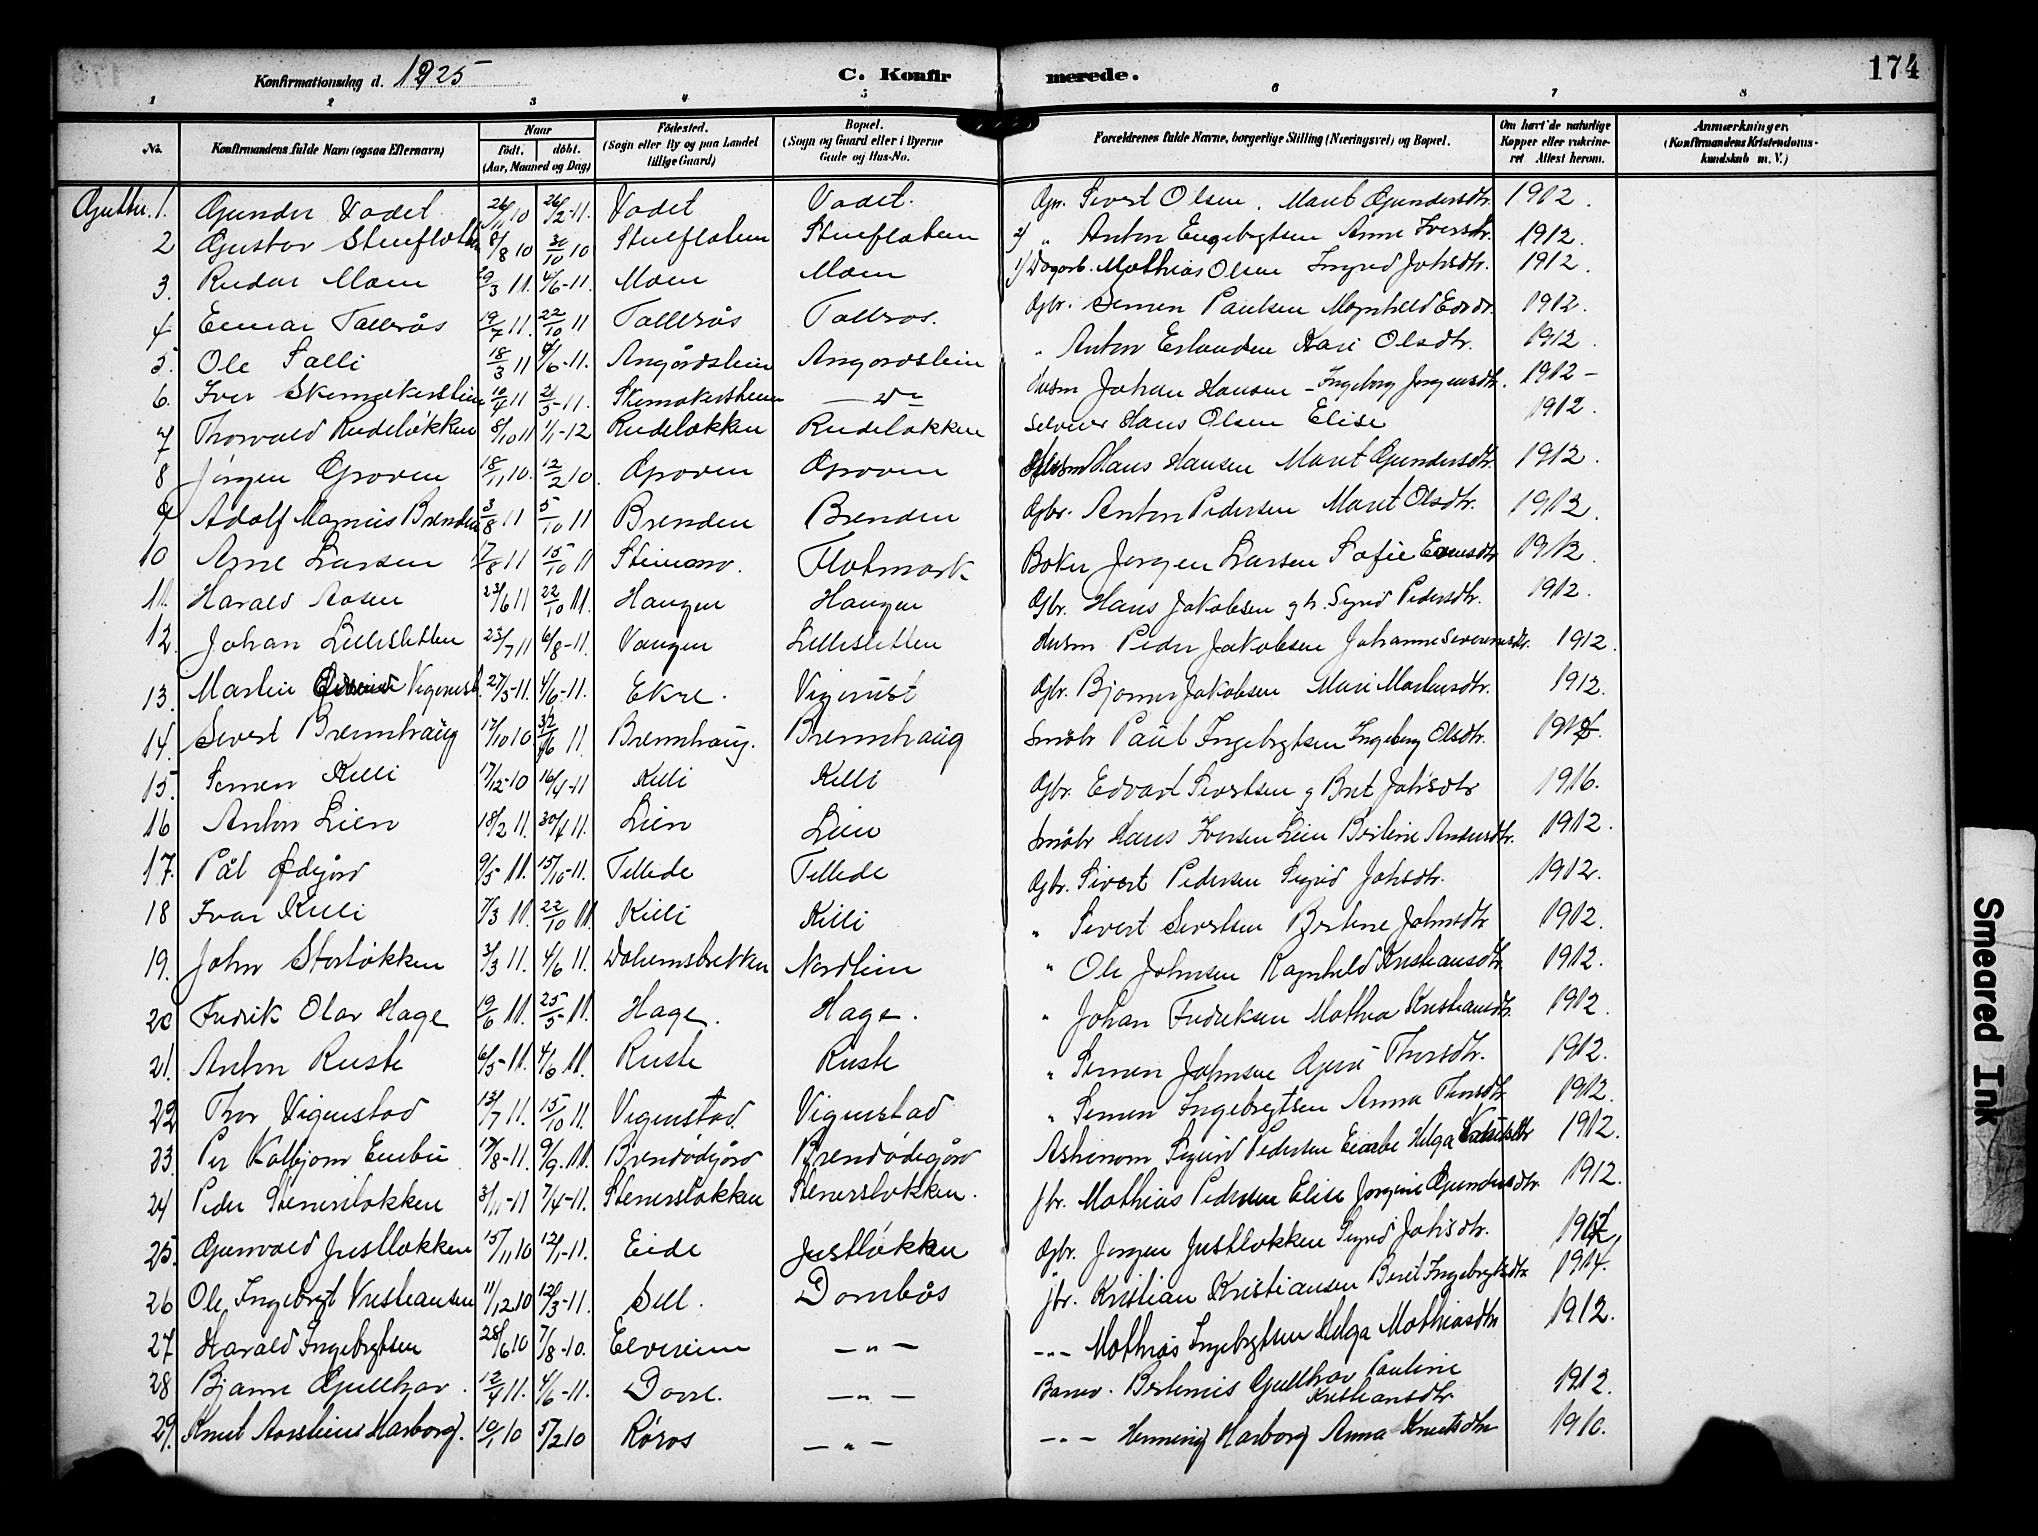 Konfirmationsdag d. 1925 C. Konfirmerede. 174
1 2 3 4 5 6 7 8
No. Konfirmandens fulde Navn (ogsaa Efternavn) Naar født. døbt. (Aar, Maaned og Dag) Fødested. (Sogn eller By og paa Landet tillige Gaard) Bopæl. (Sogn og Gaard eller i Byerne Gade og Hus-No. Forældrenes fulde Navne, borgerlige Stilling (Næringsvei) og Bopæl. Om havt de naturlige Kopper eller vakcineret Attest herom. Anmærkninger. (Konfirmandens Kristendomskundskab m. V.)
Gutter. 1. Gunder Vadet 26/11 10 26/2-11. Vadet Vadet. Gbr. Sivert Olsen. Marit Gundersdtr. 1912.
2 Gustav Stuefloten 8/8 10 30/10 10 Stueflotem Stueflotem 2) " Anton Engebrgtsen Anne Iversdtr. 1912.
3. Reidar Moen 29/3 11. 4/6-11. Moen Moen 1) Dagarb. Mathias Olsen Ingrid Johsdtr. 1912.
4 Einar Tallerås 19/7 11. 22/10 11 Tallerås Talleraas. Gbr. Simen Paulsen Magnhild 1912.
5. Ole Salli 18/3 11 4/6-11. Angårdsleim Angardsleim " Anton Erlandsen Kari Olsdtr. 1912
6. Iver Skomakerstuen 10/4 11 21/5-11. Skomakerstuen — do — Husm Johan Hansen - Ingeborg Jørgensdtr. 1912 -
7 Thorvald Rudeløkken 8/10 11 1/1-12 Rudeløkken Rudeløkken Selveier Hans Olsen Elise 1912.
8 Jørgen Groven 18/11 10. 12/2 10. Groven Groven Husm Hans Hansen Marit Gundersdtr. 1912.
9 Adolf Magnus Brenden 3/8 11 5/10 11 Brenden Brenden Gbr. Anton Pedersen Marit Olsdtr. 1912.
10 Arne Larsen 17/8 11 15/10 11 Steinmo. Flatmark Baker Jørgen Larsen Sofie Evensdtr 1912.
11. Harald Aasen 23/6 11 22/10 11. Haugen Haugen Gbr. Hans Jakobsen g h. Sigrid Pedersdtr. 1912.
12. Johan Lillesletten 23/7 11 6/8-11. Vangen Lillesletten Husm Peder Jakobsen Johanne Severinsdtr. 1912.
13. Martin Vigerust. 27/5-11. 4/6-11. Ekre. Vigerust Gbr. Bjørner Jakobsen Mari Mathisdtr. 1912.
14. Sivert Brennhaug 17/10 10 11. Brennhaug. Brennhaug Småbr Paul Ingebrgtsen Ingeborg Olsdtr.
15. Simen Killi 17/12-10 16/4-11 Killi Killi Gbr. Edvart Sivertsen g Brit Johsdtr 1916.
16 Anton Lien 18/2 11. 30/4 11. Lien Lien Småbr Hans Iversen Lien Britine Andersdtr. 1912.
17. Pål Ødegård 9/5 11. 15/10-11. Tellede Tellede Gbr. Sivert Pedersen Sigrid Johsdtr. 1912.
18 Ivar Killi 7/3 11. 22/10 11. Killi Killi " Sivert Sivertsen Britine Johnsdtr 1912.
19. John Storløkken 3/3 11. 4/6 11. Dalumsbrekken Nordlien " Ole Johnsen Ragnhild Kristiansdtr. 1912.
20 Fredrik Olav Hage 19/6 11. 25/5-11. Hage. Hage. " Johan Fredriksen Mathea Kristiansdtr. 1912.
21. Anton Ruste 6/5-11. 4/6 11. Ruste Ruste " Simen Johnsen Guri Thorsdtr. 1912.
22 Thor Vigenstad 13/7 11. 15/10 11. Vigenstad. Vigenstad " Simen Ingebrgtsen Anna Thorsdtr 1912.
23. Per Kolbjørn Einbu 17/8-11. 9/9. 11. Brendødegård Brendødegård Sigurd Pedersen Einbu Helga Knutsdtr 1912.
24 Peder Stenersløkken 3/11-11 7/4-11. Stenersløkken Stenersløkken. jbr. Mathias Pedersen Elise Jørgine Gundersdtr. 1912.
25. Gunvald Justløkken 15/11 10 12/1-11. Eide Justløkken Gbr. Jørgen Justløkken Sigrid Johsdtr. 1912
26 Ole Ingebrgt Kristiansen 11/12 10 12/3-11. Sell. Dombås jbr. Kristian Kristiansen Berit Ingebrgtsdtr 1914.
27 Harald Ingebrgtsen 28/6 10 7/8-10. Elverum — " — — " — Mathias Ingebrgtsen Helga Mathiasdtr 1912.
28 Bjarne Gullhav. 12/4 11. 4/6-11. Dovre. — " — Banev. Bertinius Gullhav Pauline Kristiansdtr. 1912.
29. Knut Aarstein Harborg. 10/1 10 5/2 10 Røros — " — — " — Henning Harborg Anna Knutsdtr 1910.
Smeared Ink